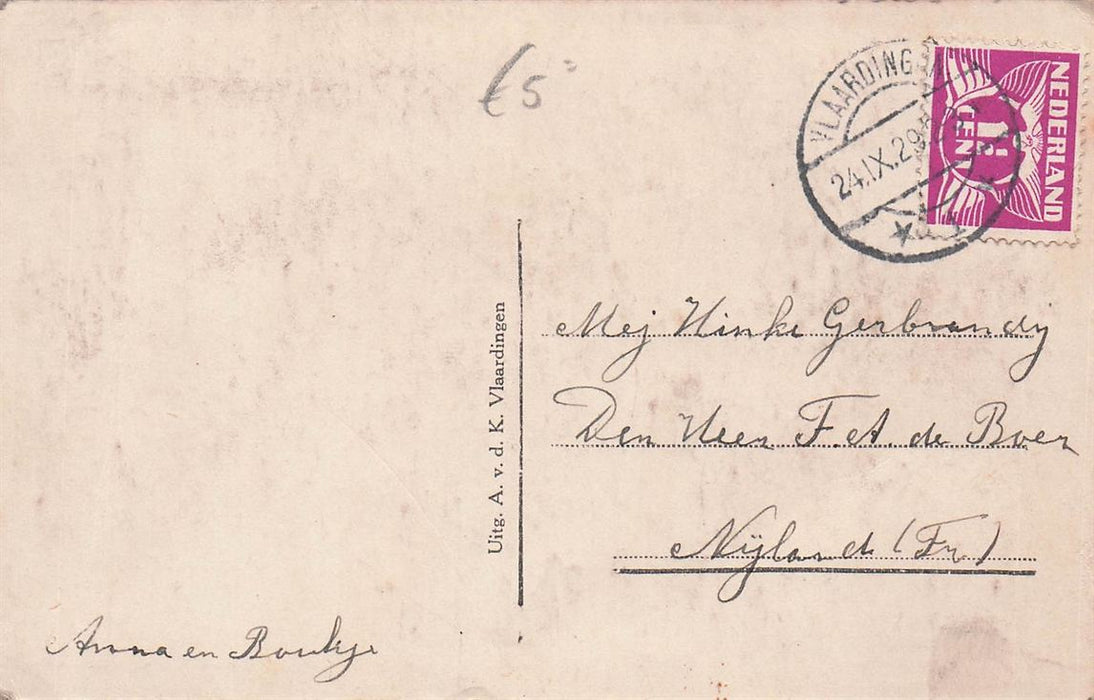 €5
VLAARDINGEN
24.IX.29
NEDERLAND
1½
CENT
Uitg. A. v. d. K. Vlaardingen
Mej Hinke Gerbrandy
Den Heer F. A. de Boer
Nijland (Fr)
Anna en Boukje